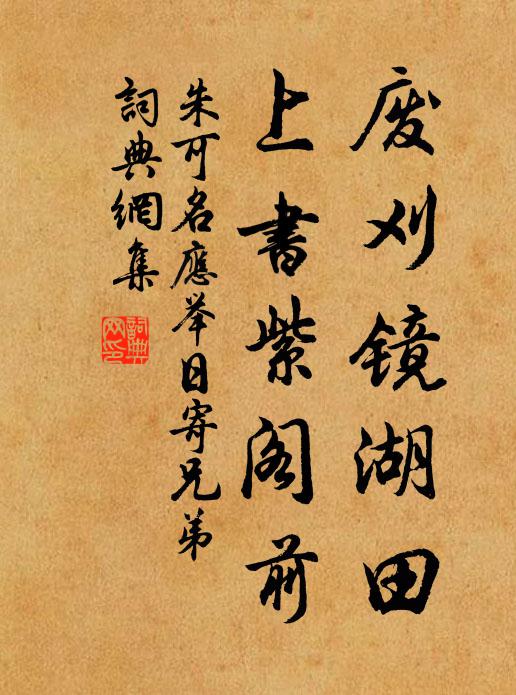 废刈镜湖田
上書紫阁前
朱可名應举日寄兄弟
詞典網集
詞典网印